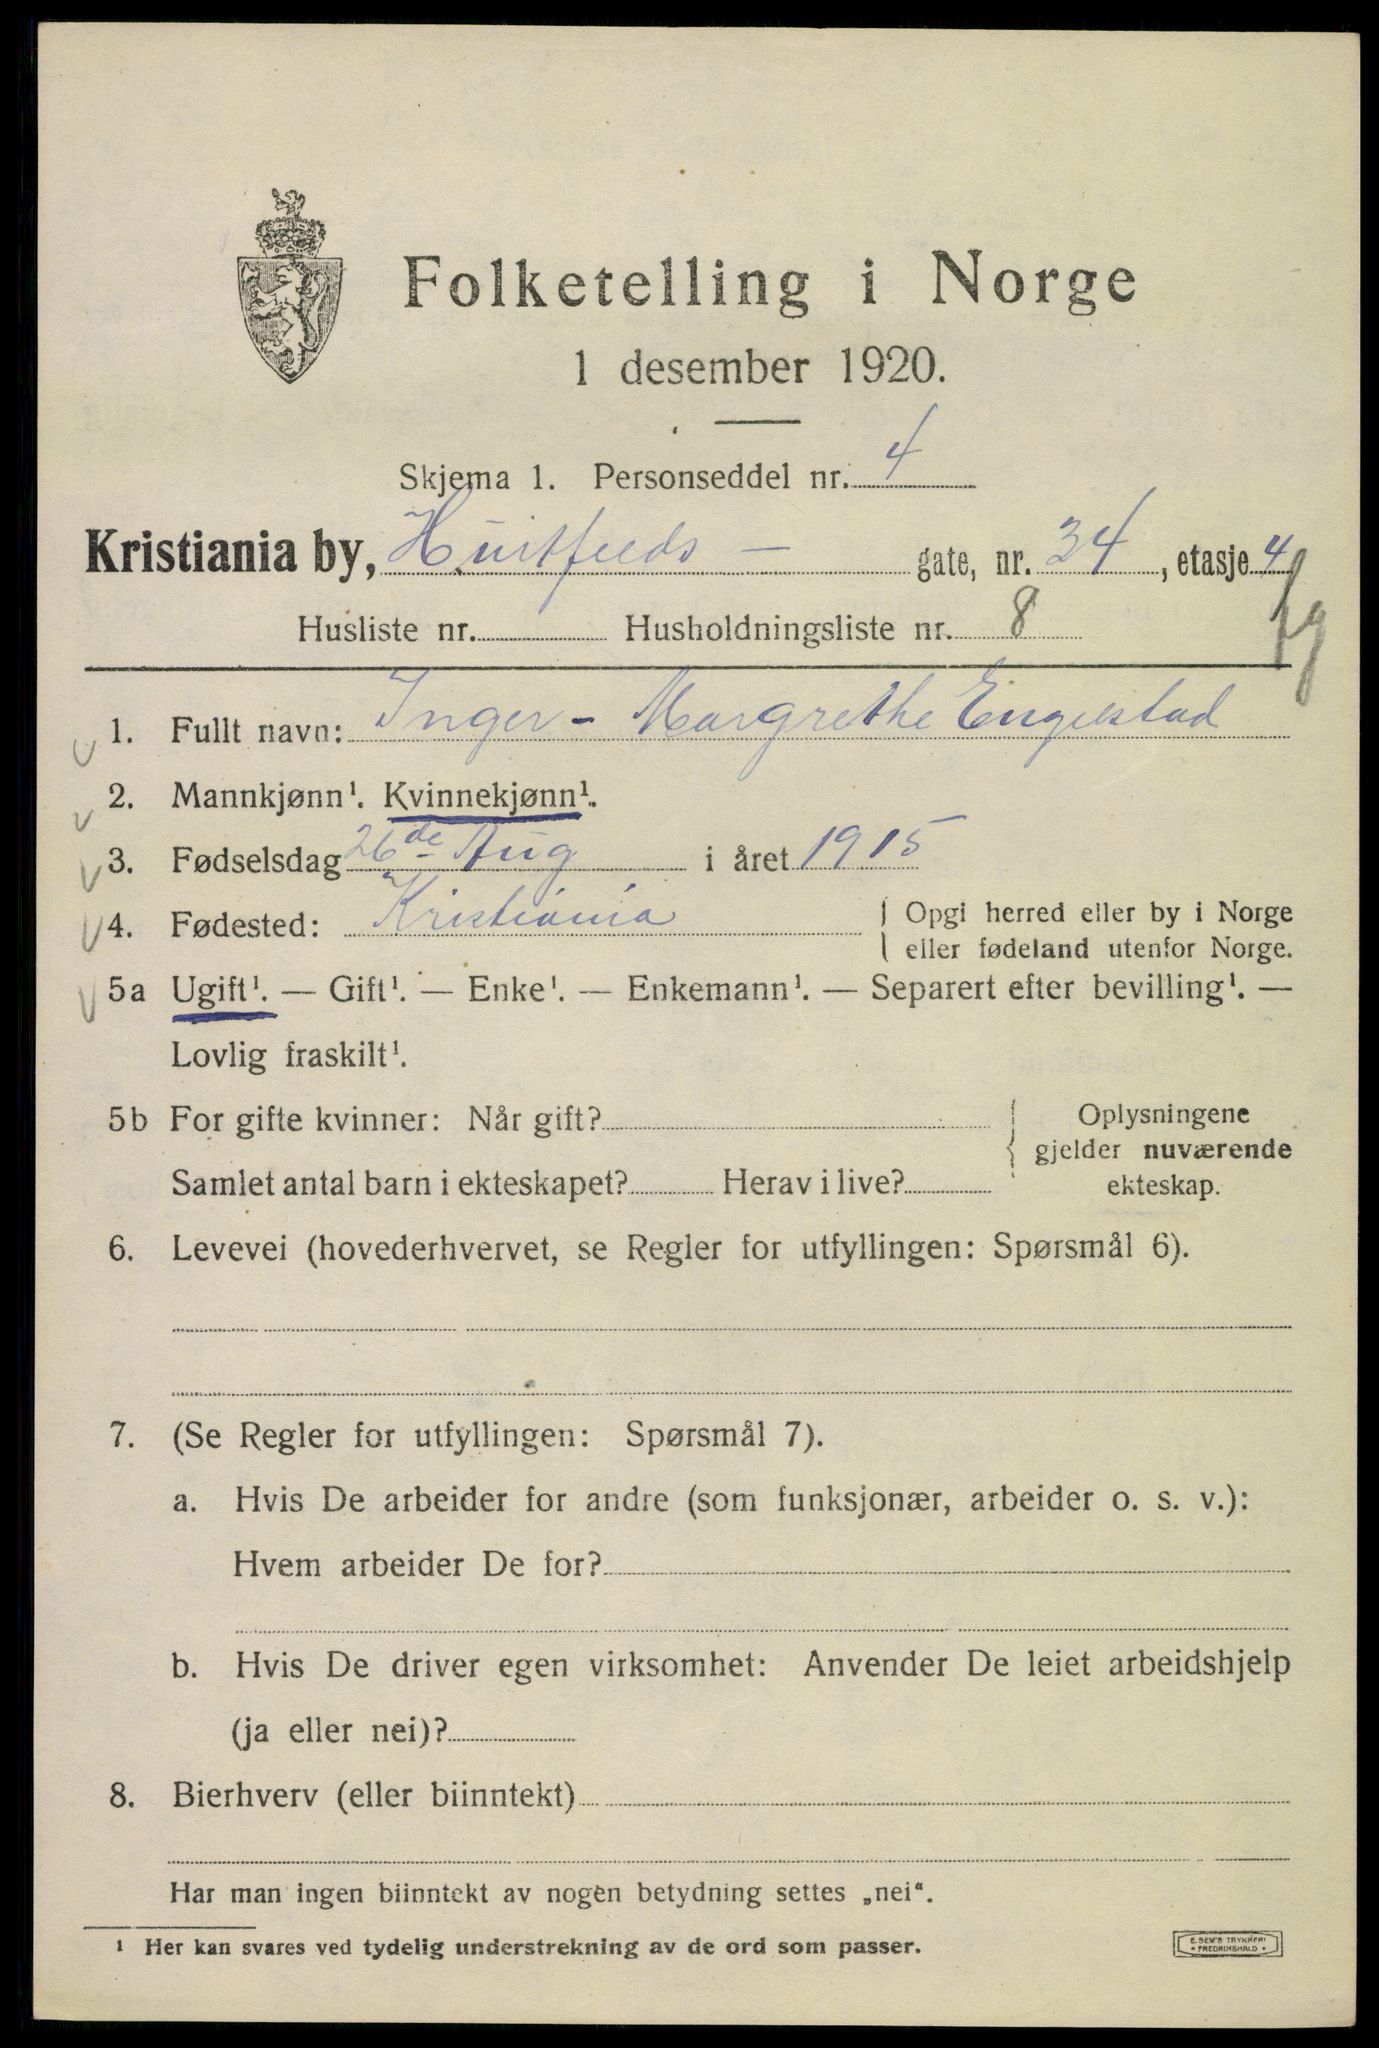 Folketelling i Norge
1 desember 1920.
Skjema 1. Personseddel nr. 4
Kristiania by, Huitfeeds — gate, nr. 34, etasje 4
Husliste nr. Husholdningsliste nr. 8
1. Fullt navn: Inger - Margrethe Engelstad
2. Mannkjønn¹. Kvinnekjønn¹.
3. Fødselsdag 26de Aug i året 1915
4. Fødested: Kristiania { Opgi herred eller by i Norge
eller fødeland utenfor Norge.
5a Ugift¹. — Gift¹. — Enke¹. — Enkemann¹. — Separert efter bevilling¹. —
Lovlig fraskilt¹.
5b For gifte kvinner: Når gift? { Oplysningene
gjelder nuværende
Samlet antal barn i ekteskapet? Herav i live? ekteskap.
6. Levevei (hovederhvervet, se Regler for utfyllingen: Spørsmål 6).
7. (Se Regler for utfyllingen: Spørsmål 7).
a. Hvis De arbeider for andre (som funksjonær, arbeider o. s. v.):
Hvem arbeider De for?
b. Hvis De driver egen virksomhet: Anvender De leiet arbeidshjelp
(ja eller nei)?
8. Bierhverv (eller biinntekt)
Har man ingen biinntekt av nogen betydning settes „nei“.
¹ Her kan svares ved tydelig understrekning av de ord som passer.
E. SEM'S TRYKKERI
• FREDRIKSHALD •